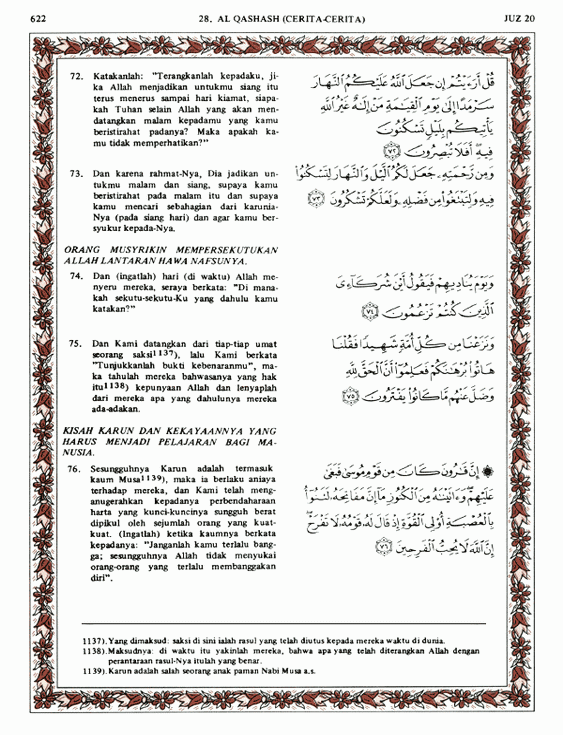 622
28. AL QASHASH (CERITA-CERITA)
JUZ 20
72. Katakanlah: "Terangkanlah kepadaku, ji-
ka Allah menjadikan untukmu siang itu
terus menerus sampai hari kiamat, siapa-
kah Tuhan selain Allah yang akan men-
datangkan malam kepadamu yang kamu
beristirahat padanya? Maka apakah ka-
mu tidak memperhatikan?"
قُلْ أَرَءَيْتُمْ إِن جَعَلَ اللَّهُ عَلَيْكُمُ النَّهَارَ
سَرْمَدًا إِلَىٰ يَوْمِ الْقِيَٰمَةِ مَنْ إِلَٰهٌ غَيْرُ اللَّهِ
يَأْتِيكُم بِلَيْلٍ تَسْكُنُونَ
فِيهِ أَفَلَا تُبْصِرُونَ ٧٢
73. Dan karena rahmat-Nya, Dia jadikan un-
tukmu malam dan siang, supaya kamu
beristirahat pada malam itu dan supaya
kamu mencari sebahagian dari karunia-
Nya (pada siang hari) dan agar kamu ber-
syukur kepada-Nya.
وَمِن رَّحْمَتِهِ جَعَلَ لَكُمُ الَّيْلَ وَالنَّهَارَ لِتَسْكُنُوا
فِيهِ وَلِتَبْتَغُوا مِن فَضْلِهِ وَلَعَلَّكُمْ تَشْكُرُونَ ٧٣
ORANG MUSYRIKIN MEMPERSEKUTUKAN
ALLAH LANTARAN HAWA NAFSUNYA.
74. Dan (ingatlah) hari (di waktu) Allah me-
nyeru mereka, seraya berkata: "Di mana-
kah sekutu-sekutu-Ku yang dahulu kamu
katakan?"
وَيَوْمَ يُنَادِيهِمْ فَيَقُولُ أَيْنَ شُرَكَآءِيَ
الَّذِينَ كُنتُمْ تَزْعُمُونَ ٧٤
75. Dan Kami datangkan dari tiap-tiap umat
seorang saksi1137), lalu Kami berkata
"Tunjukkanlah bukti kebenaranmu", ma-
ka tahulah mereka bahwasanya yang hak
itu1138) kepunyaan Allah dan lenyaplah
dari mereka apa yang dahulunya mereka
ada-adakan.
وَنَزَعْنَا مِن كُلِّ أُمَّةٍ شَهِيدًا فَقُلْنَا
هَاتُوا بُرْهَٰنَكُمْ فَعَلِمُوا أَنَّ الْحَقَّ لِلَّهِ
وَضَلَّ عَنْهُم مَّا كَانُوا يَفْتَرُونَ ٧٥
KISAH KARUN DAN KEKAYAANNYA YANG
HARUS MENJADI PELAJARAN BAGI MA-
NUSIA.
76. Sesungguhnya Karun adalah termasuk
kaum Musa1139), maka ia berlaku aniaya
terhadap mereka, dan Kami telah meng-
anugerahkan kepadanya perbendaharaan
harta yang kunci-kuncinya sungguh berat
dipikul oleh sejumlah orang yang kuat-
kuat. (Ingatlah) ketika kaumnya berkata
kepadanya: "Janganlah kamu terlalu bang-
ga; sesungguhnya Allah tidak menyukai
orang-orang yang terlalu membanggakan
diri".
۞ إِنَّ قَٰرُونَ كَانَ مِن قَوْمِ مُوسَىٰ فَبَغَىٰ
عَلَيْهِمْ وَءَاتَيْنَٰهُ مِنَ الْكُنُوزِ مَآ إِنَّ مَفَاتِحَهُ لَتَنُوٓأُ
بِالْعُصْبَةِ أُولِي الْقُوَّةِ إِذْ قَالَ لَهُ قَوْمُهُ لَا تَفْرَحْ
إِنَّ اللَّهَ لَا يُحِبُّ الْفَرِحِينَ ٧٦
1137). Yang dimaksud: saksi di sini ialah rasul yang telah diutus kepada mereka waktu di dunia.
1138). Maksudnya: di waktu itu yakinlah mereka, bahwa apa yang telah diterangkan Allah dengan
perantaraan rasul-Nya itulah yang benar.
1139). Karun adalah salah seorang anak paman Nabi Musa a.s.